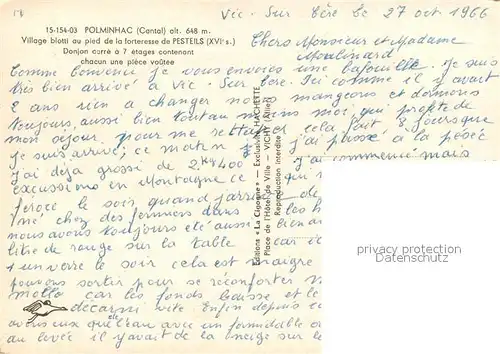 15-154-03 POLMINHAC (Cantal) alt. 648 m.
Village blotti au pied de la forteresse de PESTEILS (XVIe s.)
Donjon carré à 7 étages contenant
chacun une pièce voûtée
Vic. Sur Cère Le 27 oct 1966
Chers Monsieur et Madame
Moulinard
Comme convenu je vous envoies une bafouille. Je suis
très bien arrivé à Vic. Sur Cère. Ici comme il y avait
2 ans rien a changer nous mangeons et dormons
toujours aussi bien tout au moins moi qui profite de
mon séjour pour me cela fait 8 jours que
je suis arrivé; ce matin j'ai passé à la pesée
j'ai déja grossi de 2kg400 j'ai commencé mais
excussions en Montagne ce qui
féroce le soir, quand
mé chez des fermiers dans
nous avons toujours été aussi bien
litre de rouge sur la table car
1 un verre le soir cela est maigre
pouvons sortir pour se réconforter
mollo car les fonds baisse et le
décarmi vite Enfin depuis
avons eux que l'eau avec un formidable
au levée il y avait de la neige sur le
Editions « La Cigogne » - Exclusivité HACHETTE
Place de l'Hôtel de Ville - VICHY (Allier)
Reproduction interdite
privacy protection
Datenschutz